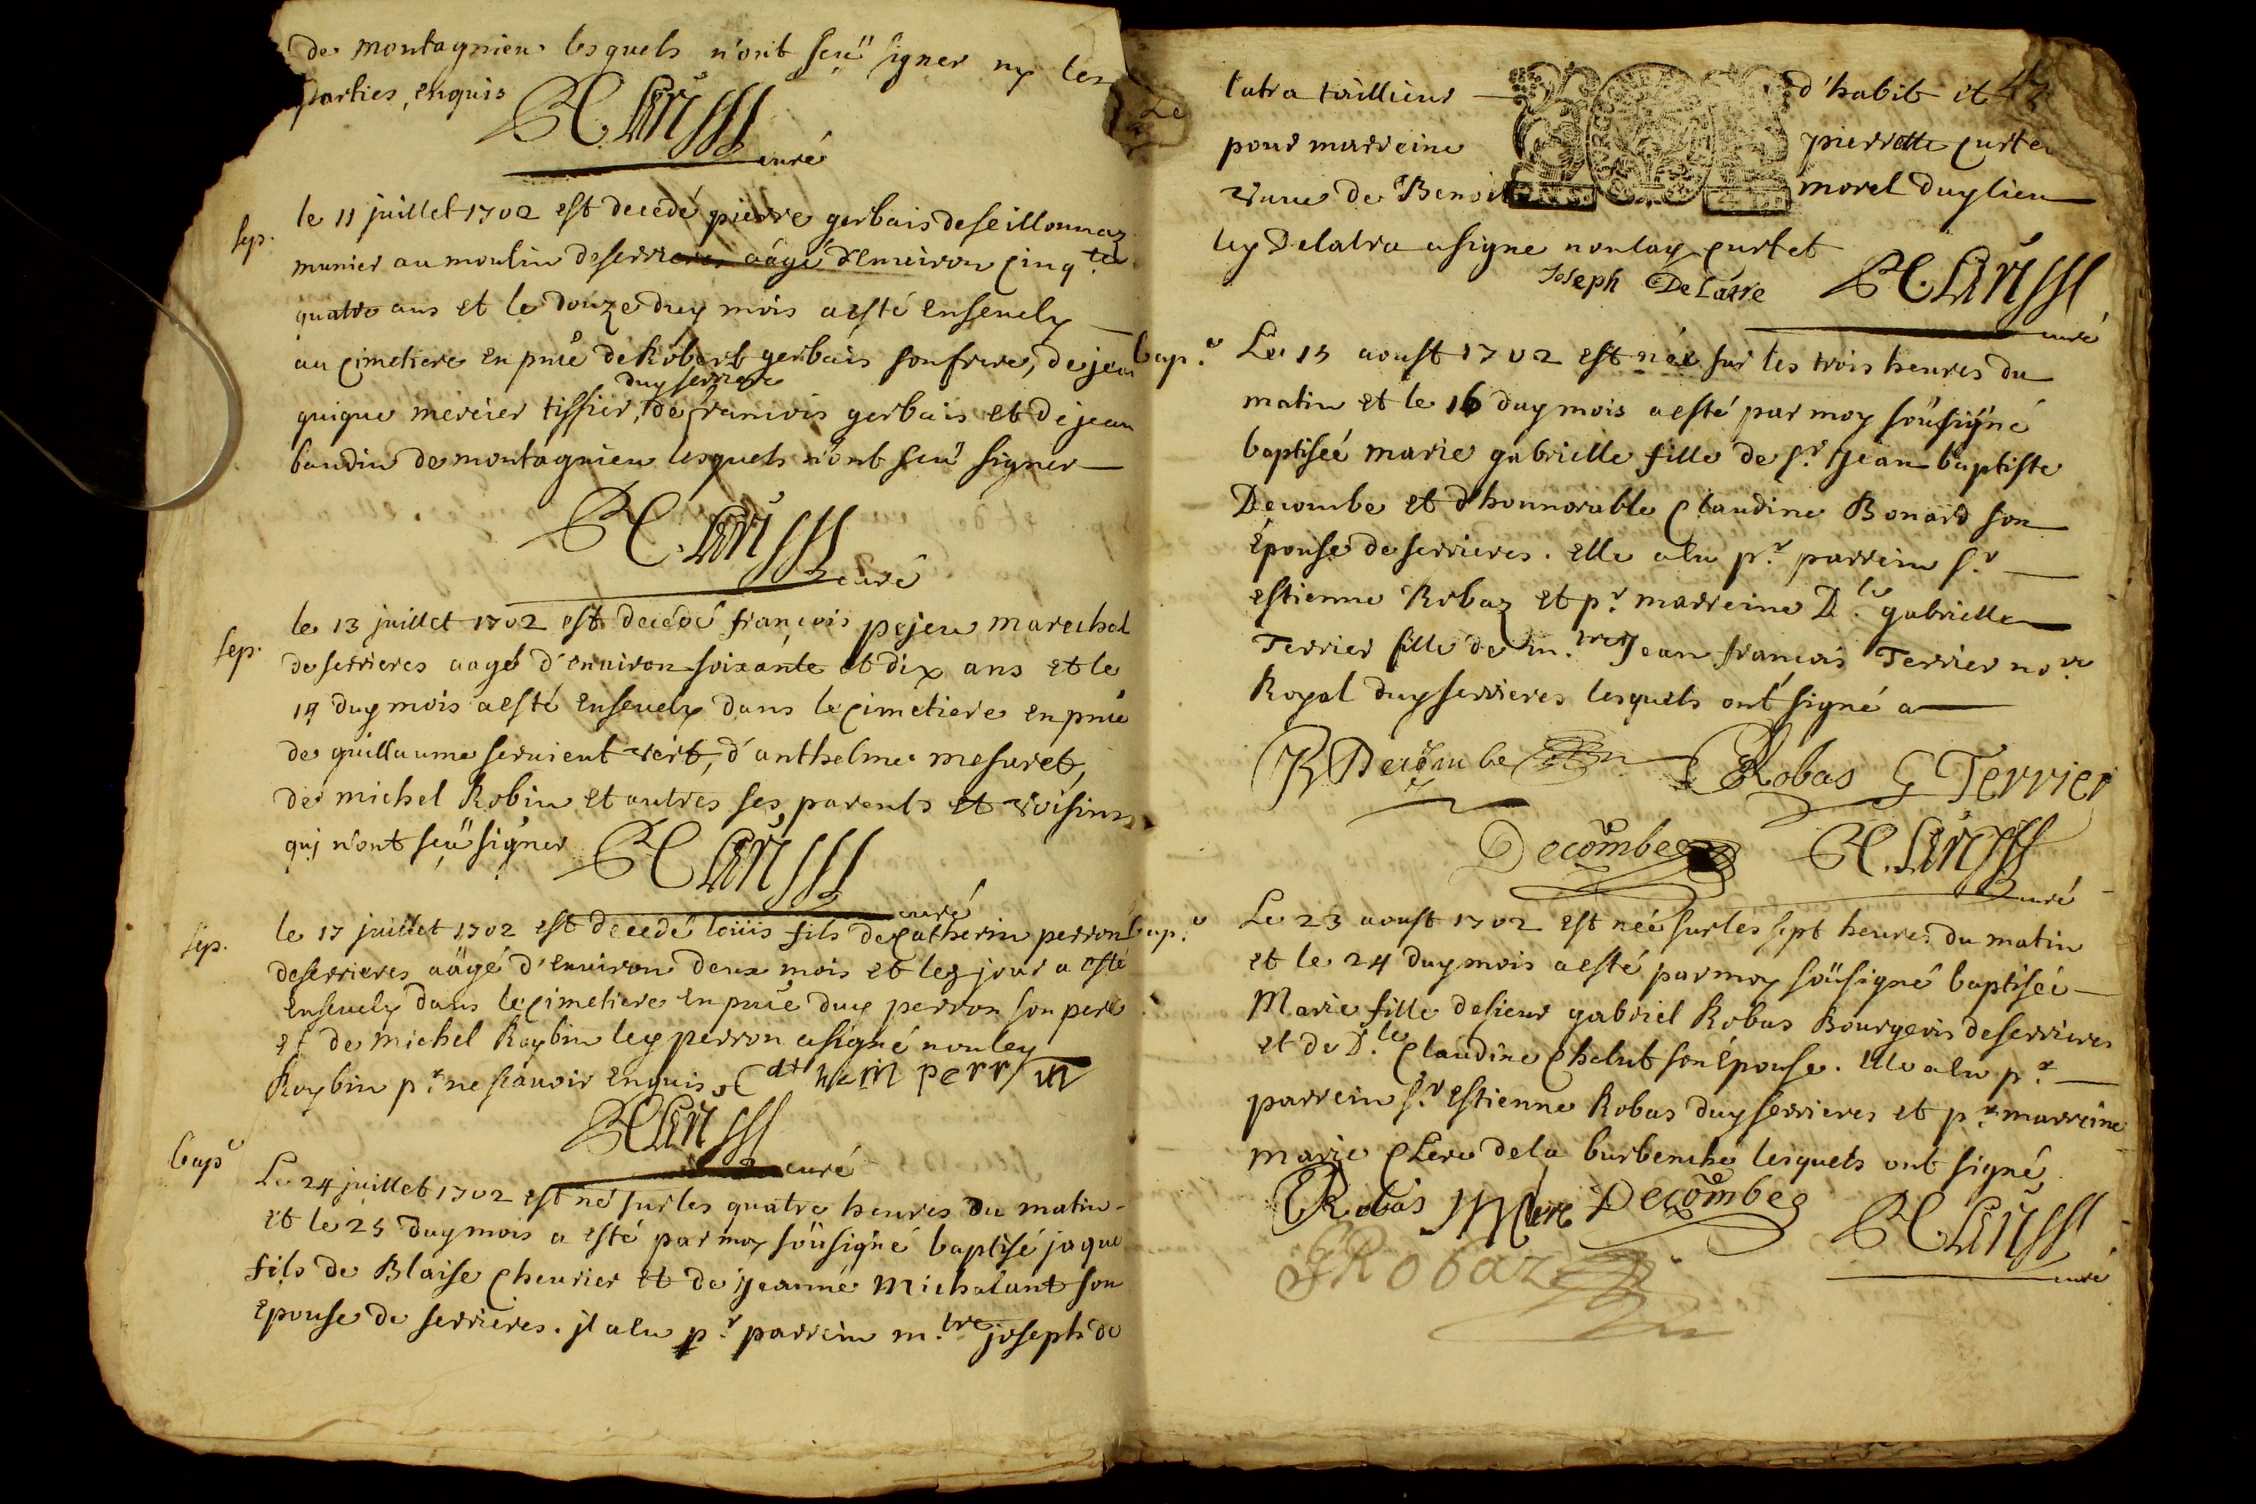 de montagnieu lesquels n'ont sçeu signer ny les
parties, enquis
curé
sep.
le 11 juillet 1702 est decedé pierre gerbais de seillonnaz
munier au moulin de serrieres aâgé d'enuiron cinq.te
quatre ans et le douze duy mois a esté enseuely
au cimetiere en pñce de Robert gerbais son frere, de jean
duy serriere
guigue mercier tissier, de francois gerbais et de jean
baudin de montagnieu lesquels n'ont sceu signer
curé
sep.
le 13 juillet 1702 est decedé françois pejeu marechal
de serrieres aagé d'enuiron soixante et dix ans et le
14 duy mois a esté enseuely dans le cimetiere en pñce
de guillaume seruient vert, d'anthelme mesuret,
de michel Robin et autres ses parents et voisins
qui n'ont sçeü signer
curé
sep.
le 17 juillet 1702 est decedé loüis fils de catherin perron
de serrieres aâgé d'enuiron deux mois et led jour a esté
enseuely dans le cimetiere en pñce duy perron son pere
et de michel Roybin ley perron a signé non ley
Roybin p.r ne sçauoir enquis
perron
curé
bap.e
Le 24 juillet 1702 est né sur les quatre heures du matin
et le 25 duy mois a esté par moy soûsigné baptisé jaque
fils de Blaise cheurier et de jeanne Michalant son
epouse de serrieres. jl a eu p.r parrein m.tre joseph de
latra taillieur d'habit et
pour marreine pierrette curtet
vefue de Benoit morel duy lieu
ley Delatra a signe non lay curtet
Joseph DeLatre
curé
bap.e
Le 15 aoust 1702 est née sur les trois heures du
matin et le 16 duy mois a esté par moy soûsigné
baptiseé marie gabrielle fille de s.r jean baptiste
Decombe et d'honnorable claudine Bonard son
épouse de serrieres. elle a eu p.r parrein s.r
estienne Robaz et p.r marreine D.le gabrielle
Terrier fille de m.tre jean françois Terrier no.re
Royal duy serrieres lesquels ont signé
Decombe Robas G Terrier
Decombe
curé
bap.e
Le 23 aoust 1702 est neé sur les sept heures du matin
et le 24 duy mois a esté par moy soûsigné baptiseé
Marie fille de sieur gabriel Robas Bourgeois de serrieres
et de D.le claudine chalut son épouse. elle a eu p.r
parrein s.r estienne Robas duy serrieres et p.r marreine
marie clerc de la burbenche lesquels ont signé
Robas M clerc Decombe
G Robaz
curé